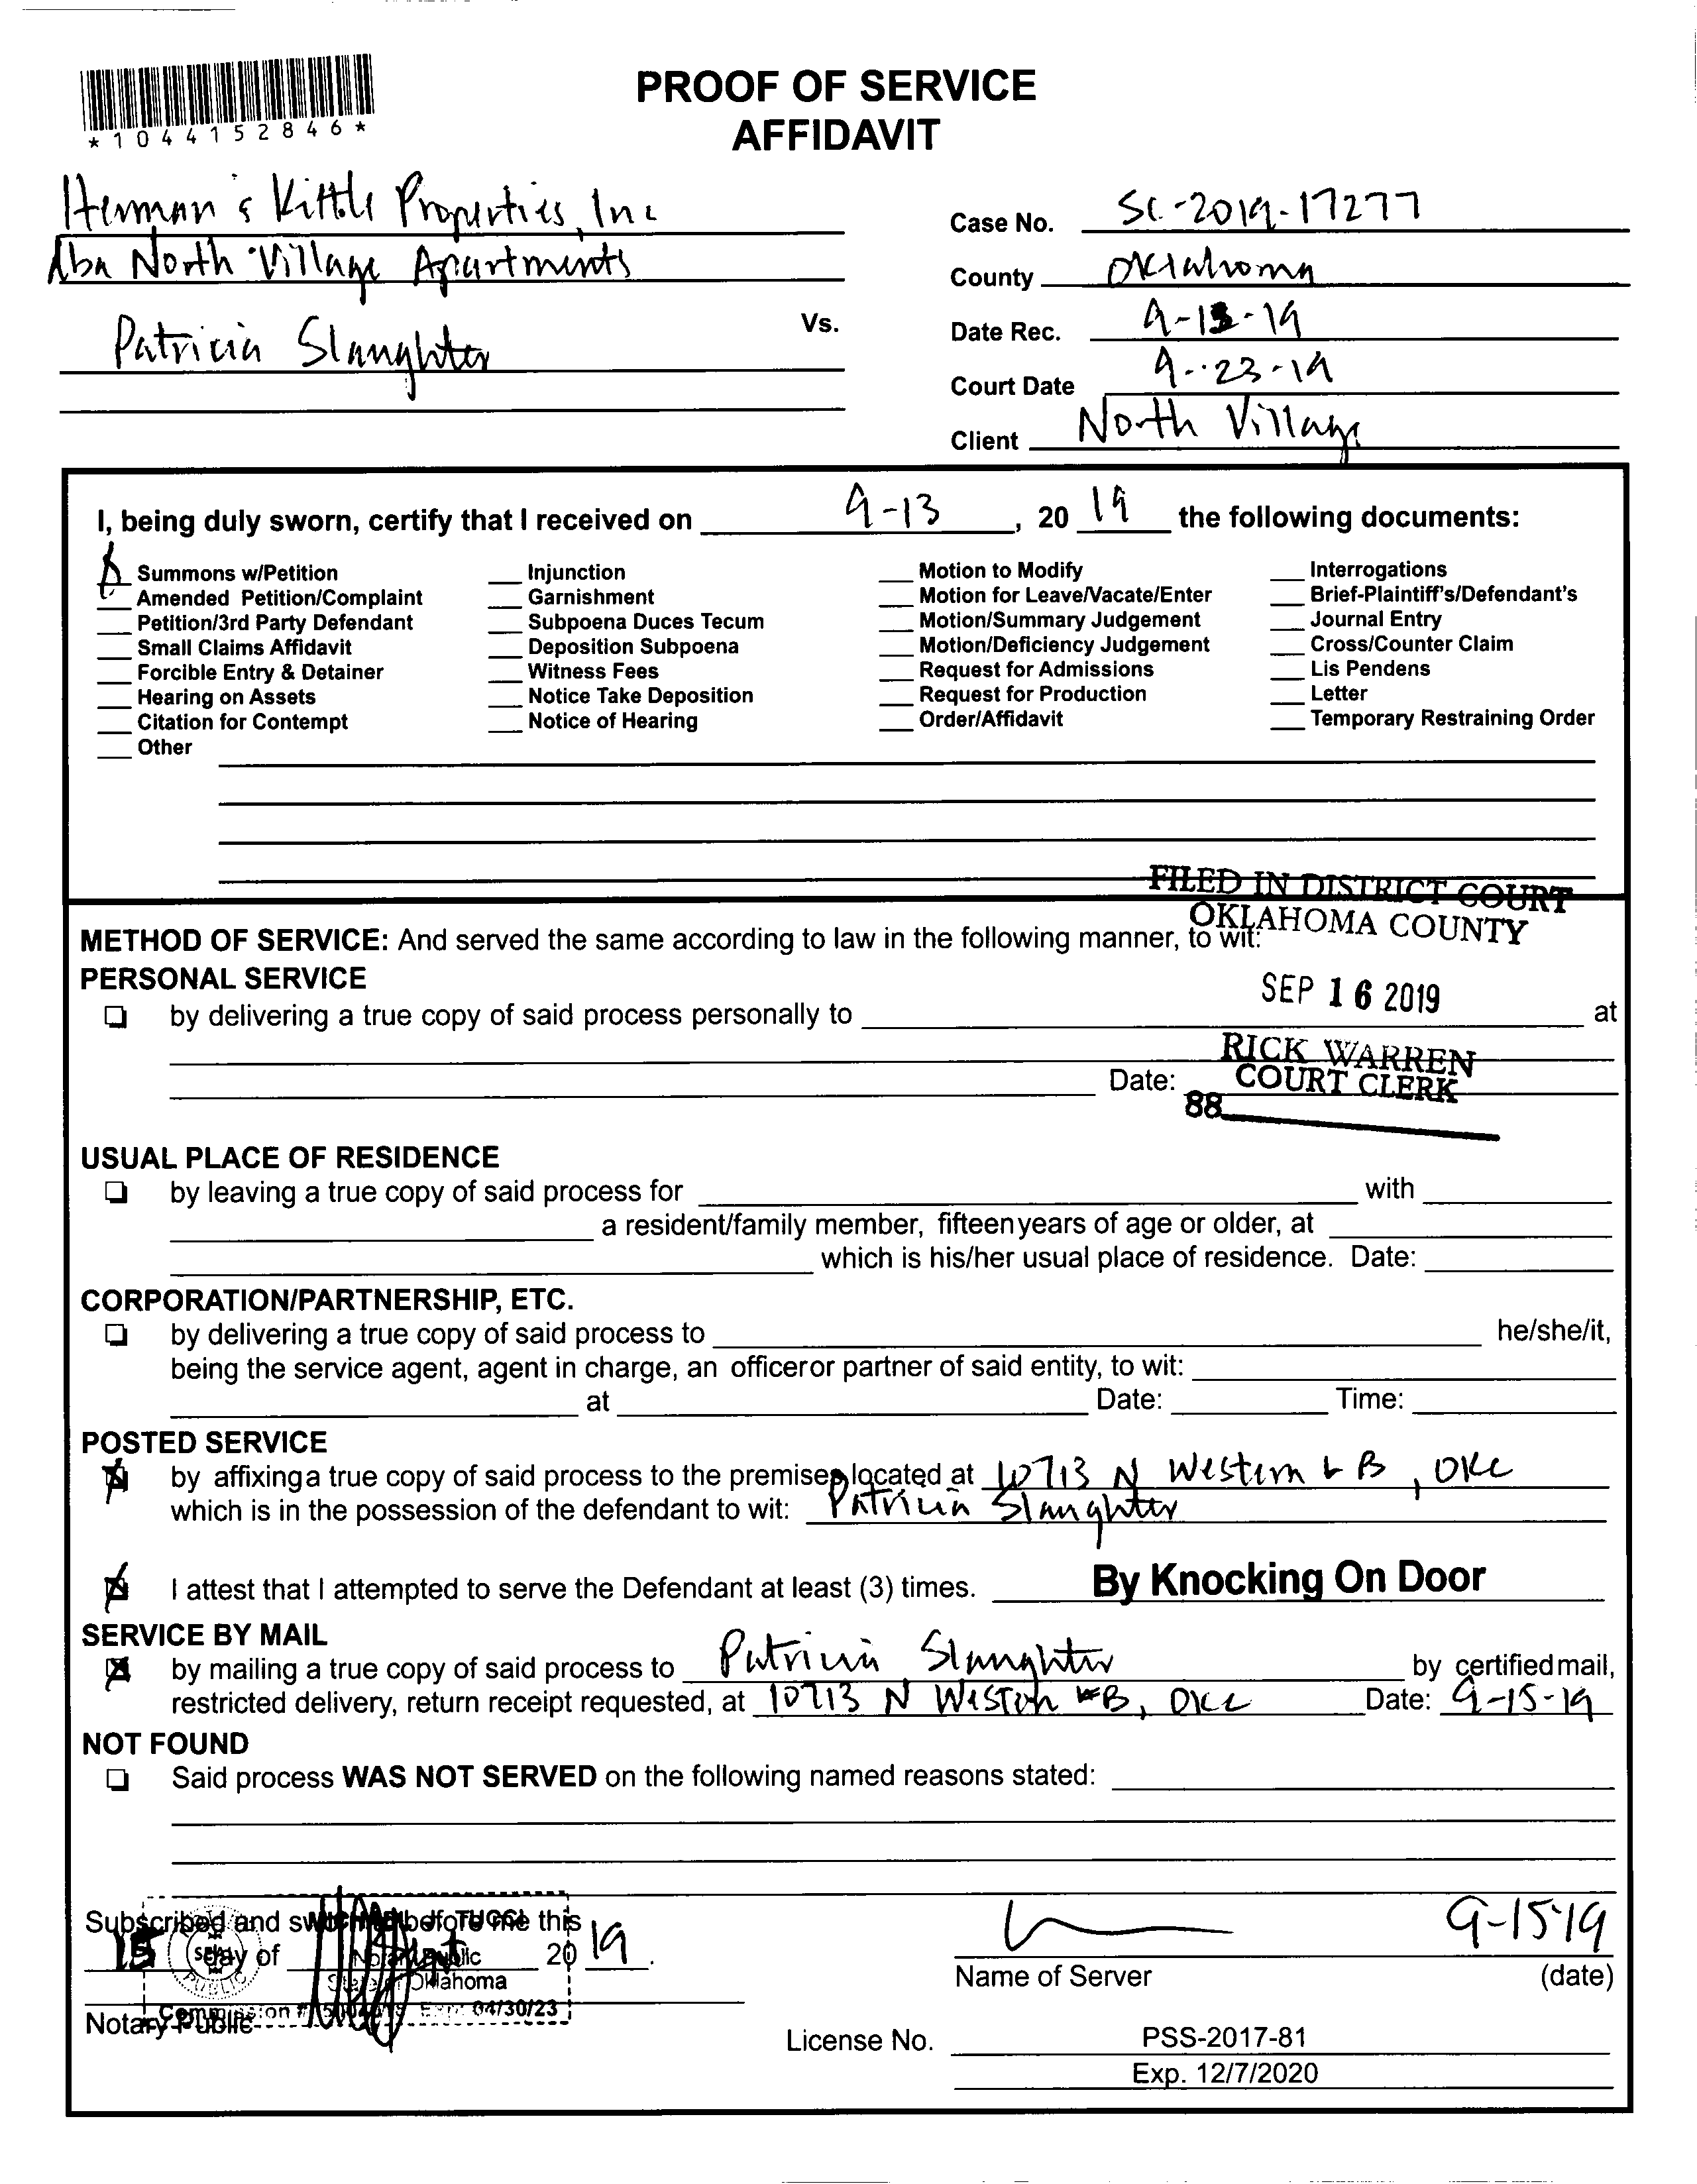 PROOF OF SERVICE
AFFIDAVIT
*1044152846*
Herman & Kittle Properties, Inc
dba North Village Apartments
Vs.
Patricia Slaughter
Case No. SC-2019-17277
County Oklahoma
Date Rec. 9-13-19
Court Date 9-23-19
Client North Village
I, being duly sworn, certify that I received on 9-13, 20 19 the following documents:
Summons w/Petition
Amended Petition/Complaint
Petition/3rd Party Defendant
Small Claims Affidavit
Forcible Entry & Detainer
Hearing on Assets
Citation for Contempt
Other
Injunction
Garnishment
Subpoena Duces Tecum
Deposition Subpoena
Witness Fees
Notice Take Deposition
Notice of Hearing
Motion to Modify
Motion for Leave/Vacate/Enter
Motion/Summary Judgement
Motion/Deficiency Judgement
Request for Admissions
Request for Production
Order/Affidavit
Interrogations
Brief-Plaintiff's/Defendant's
Journal Entry
Cross/Counter Claim
Lis Pendens
Letter
Temporary Restraining Order
FILED IN DISTRICT COURT
OKLAHOMA COUNTY
METHOD OF SERVICE: And served the same according to law in the following manner, to wit:
PERSONAL SERVICE
SEP 16 2019
by delivering a true copy of said process personally to at
RICK WARREN
Date: COURT CLERK
88
USUAL PLACE OF RESIDENCE
by leaving a true copy of said process for with
a resident/family member, fifteen years of age or older, at
which is his/her usual place of residence. Date:
CORPORATION/PARTNERSHIP, ETC.
by delivering a true copy of said process to he/she/it,
being the service agent, agent in charge, an officer or partner of said entity, to wit:
at Date: Time:
POSTED SERVICE
by affixing a true copy of said process to the premises located at 10713 N Western B, OKC
which is in the possession of the defendant to wit: Patricia Slaughter
I attest that I attempted to serve the Defendant at least (3) times. By Knocking On Door
SERVICE BY MAIL
by mailing a true copy of said process to Patricia Slaughter by certified mail,
restricted delivery, return receipt requested, at 10713 N Western #B, OKC Date: 9-15-19
NOT FOUND
Said process WAS NOT SERVED on the following named reasons stated:
Subscribed and sworn before me this
15 day of Sept 20 19.
TUCCI
Notary Public
State of Oklahoma
Exp. 04/30/23
Notary Public
9-15-19
Name of Server (date)
License No. PSS-2017-81
Exp. 12/7/2020